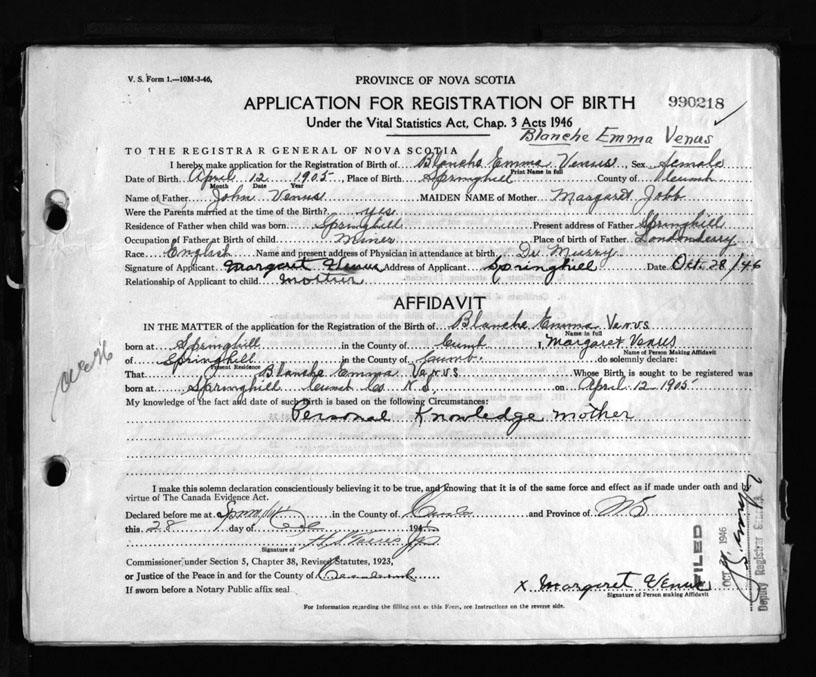 V. S. Form 1.—10M-3-46,
PROVINCE OF NOVA SCOTIA
APPLICATION FOR REGISTRATION OF BIRTH 990218
Under the Vital Statistics Act, Chap. 3 Acts 1946
Blanche Emma Venus
TO THE REGISTRAR GENERAL OF NOVA SCOTIA
I hereby make application for the Registration of Birth of Blanche Emma Venus, Sex female
Print Name in full
Date of Birth April 12 1905, Place of Birth Springhill County of Cumb
Month Date Year
Name of Father John Venus MAIDEN NAME of Mother Margaret Jobb
Were the Parents married at the time of the Birth? yes
Residence of Father when child was born Springhill Present address of Father Springhill
Occupation of Father at Birth of child Miner Place of birth of Father Londonderry
Race English Name and present address of Physician in attendance at birth Dr Murry
Signature of Applicant Margaret Venus Address of Applicant Springhill Date Oct. 28/46
Relationship of Applicant to child Mother
AFFIDAVIT
IN THE MATTER of the application for the Registration of the Birth of Blanche Emma Venus
Name in full
born at Springhill in the County of Cumb I, Margaret Venus
Name of Person Making Affidavit
of Springhill in the County of Cumb. do solemnly declare:
Present Residence
That Blanche Emma Venus Whose Birth is sought to be registered was
born at Springhill Cumb Co N.S. on April-12-1905
My knowledge of the fact and date of such birth is based on the following Circumstances:
Personal Knowledge mother
I make this solemn declaration conscientiously believing it to be true, and knowing that it is of the same force and effect as if made under oath and by
virtue of The Canada Evidence Act.
Declared before me at Springhill in the County of Cumb and Province of NS
this 28 day of Oct 1946
Signature of
Commissioner under Section 5, Chapter 38, Revised Statutes, 1923,
or Justice of the Peace in and for the County of Cumberland
If sworn before a Notary Public affix seal
x Margaret Venus
Signature of Person making Affidavit
For Information regarding the filling out of this Form, see Instructions on the reverse side.
FILED
OCT 1946
Deputy Registrar General